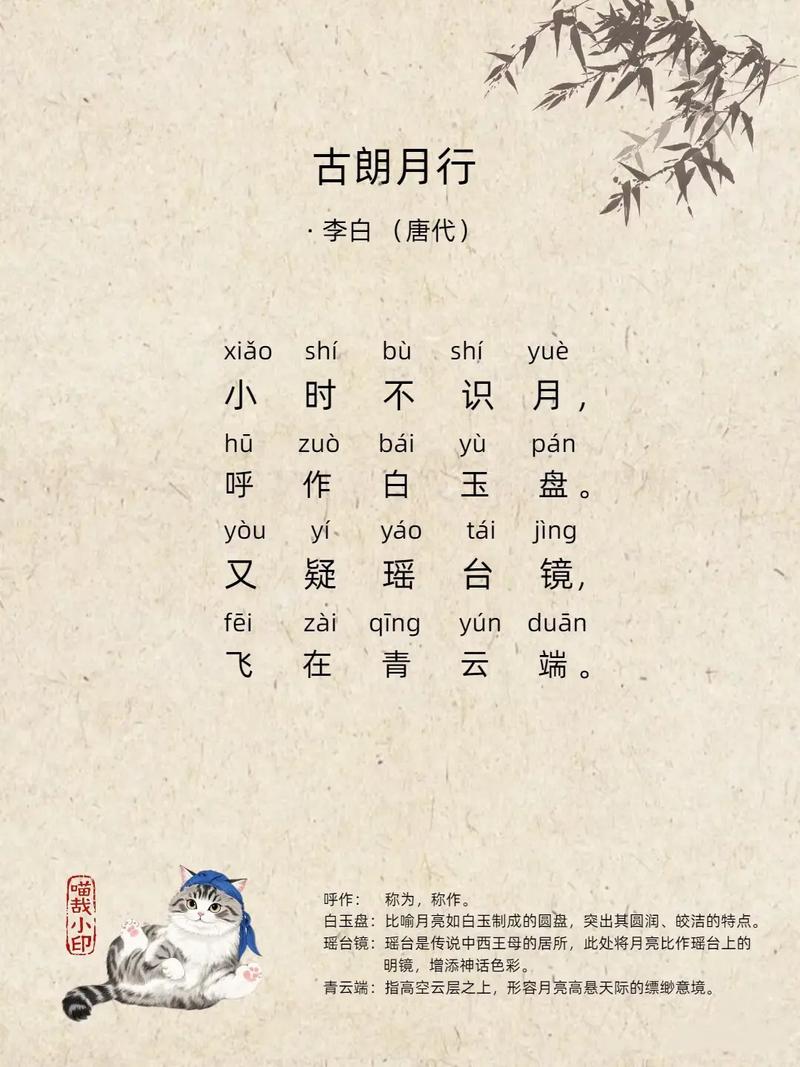 古朗月行
· 李白 （唐代）
xiǎo shí bù shí yuè
小 时 不 识 月，
hū zuò bái yù pán
呼 作 白 玉 盘。
yòu yí yáo tái jìng
又 疑 瑶 台 镜，
fēi zài qīng yún duān
飞 在 青 云 端。
呼作： 称为，称作。
白玉盘：比喻月亮如白玉制成的圆盘，突出其圆润、皎洁的特点。
瑶台镜：瑶台是传说中西王母的居所，此处将月亮比作瑶台上的
明镜，增添神话色彩。
青云端：指高空云层之上，形容月亮高悬天际的缥缈意境。
喵哉小印